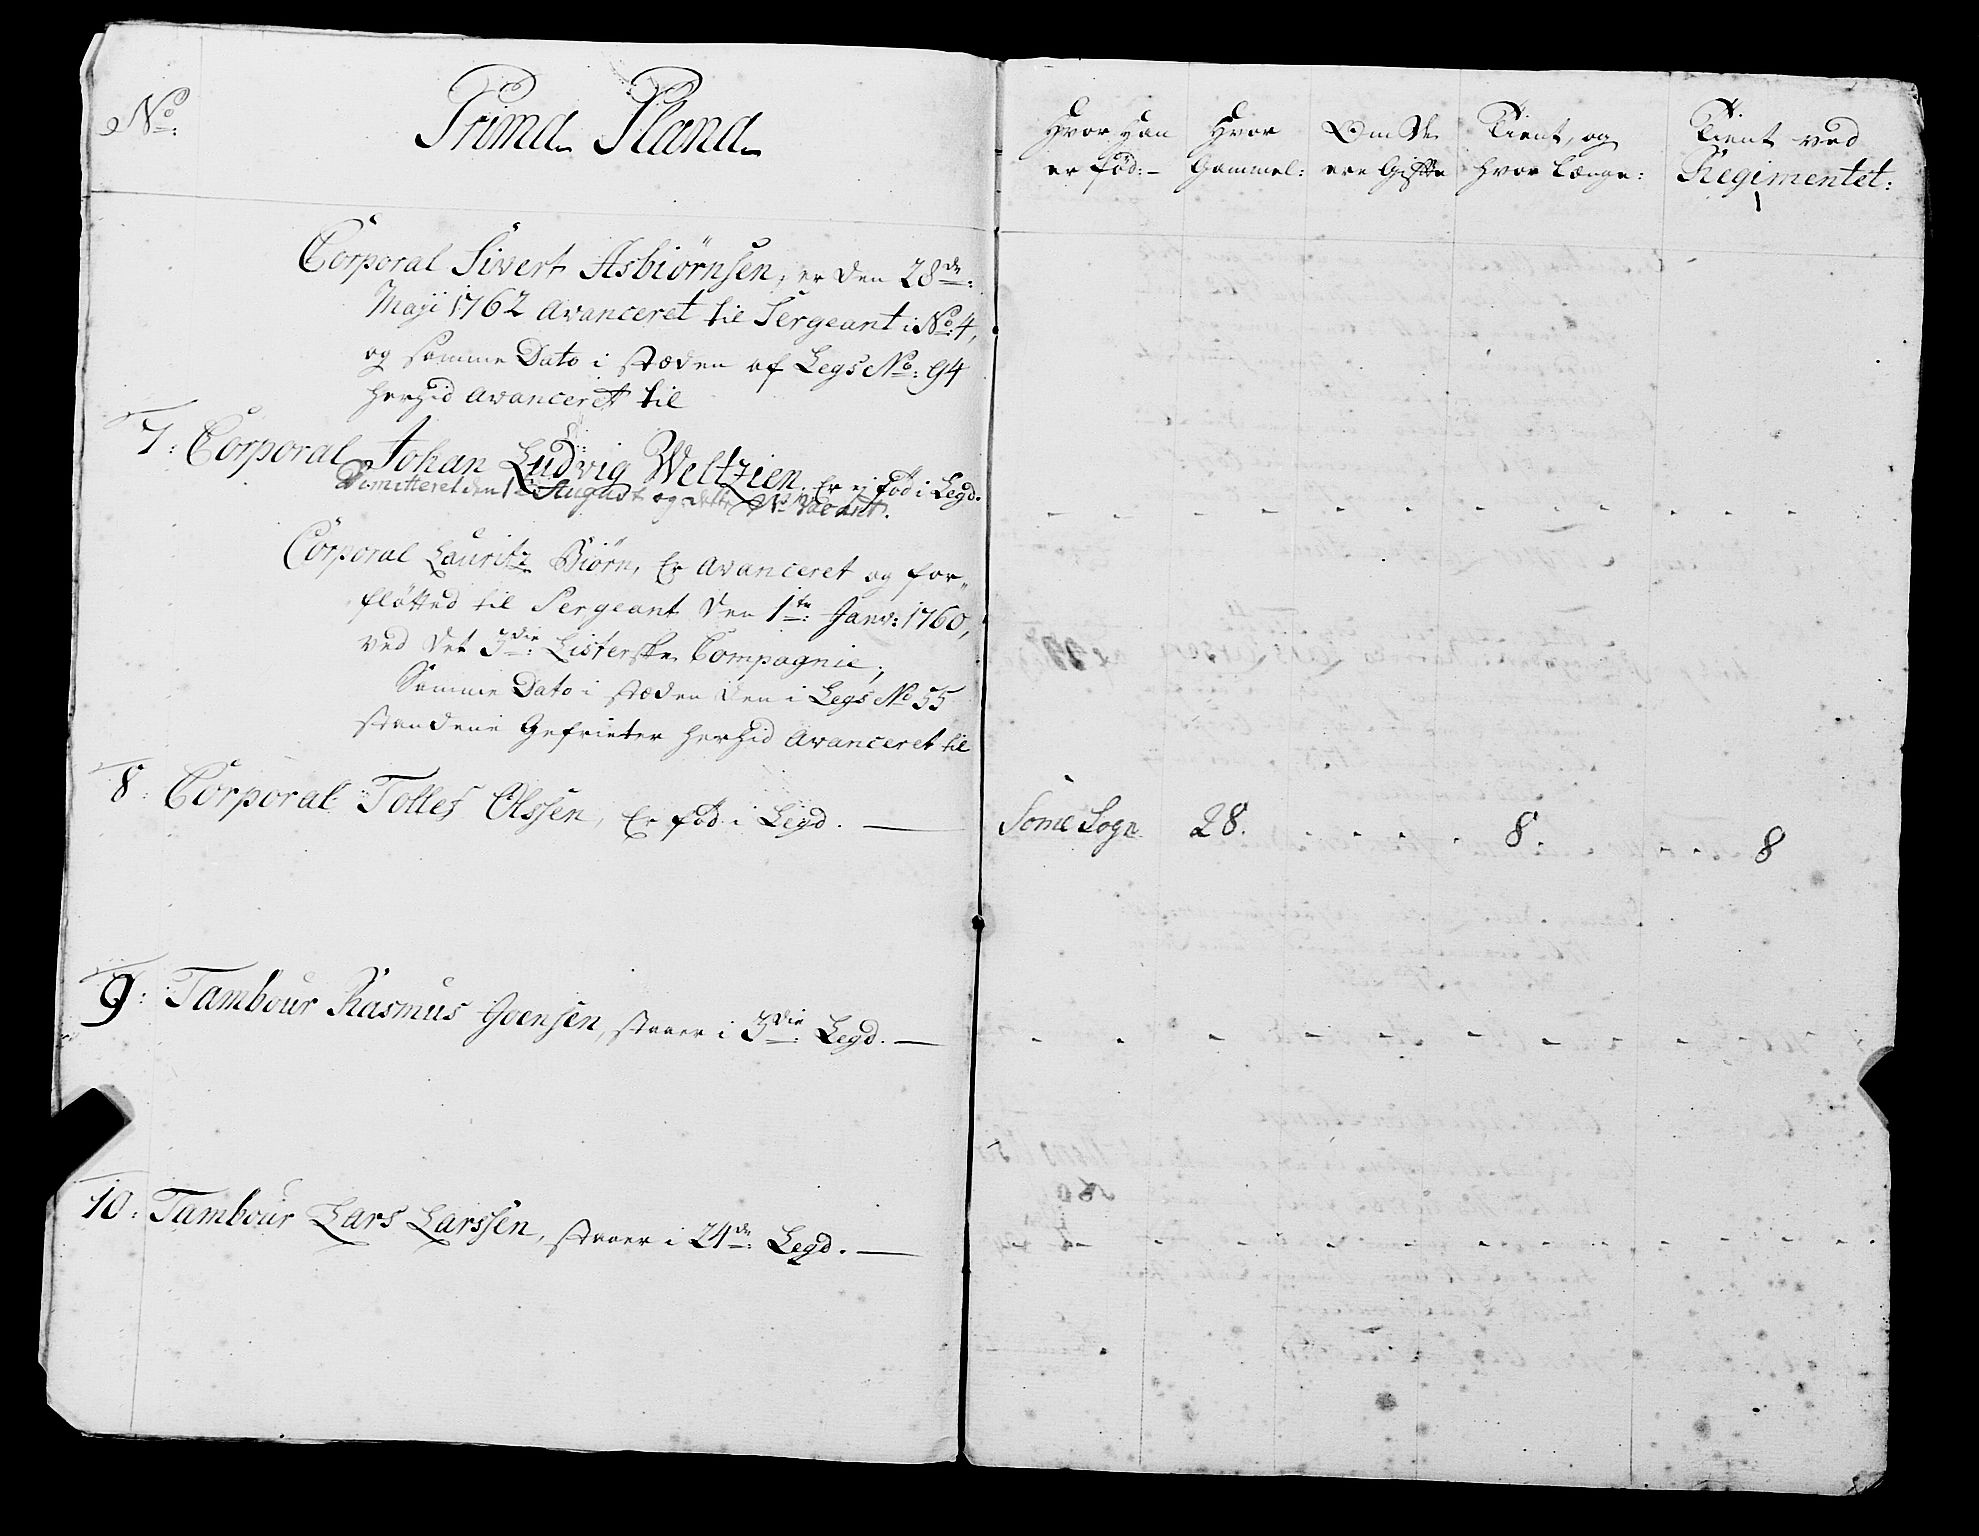 No:
Prima Plana
Hvor Han er født:
Hvor Gammel:
Om de ere Gifte
Tient, og hvor Længe:
Tient ved Regimentet:
Corporal Sivert Asbiørnsen, er den 28de:
Maji 1762 Avanceret til Sergeant i No: 4,
og samme Dato i stæden af Legs No: 94
herhid Avanceret til
7: Corporal Johan Ludvig Weltzien. Er ej fød i Legd.
Dimitteret den 1te August og dette No Vacant.
Corporal Lauritz Biørn, Er Avanceret og for-
fløtted til Sergeant den 1te: Janv: 1760,
ved det 3die: Listerske Compagnie,
Samme Dato i stæden den i Legs No 55
standene Gefrieter herhid Avanceret til
8: Corporal Tollef Olssen, Er fød i Legd. — Some Sogn 28. 8. 8
9: Tambour Rasmus Goensen, staaer i 3die: Legd. —
10: Tambour Lars Larssen, staaer i 24de: Legd. —